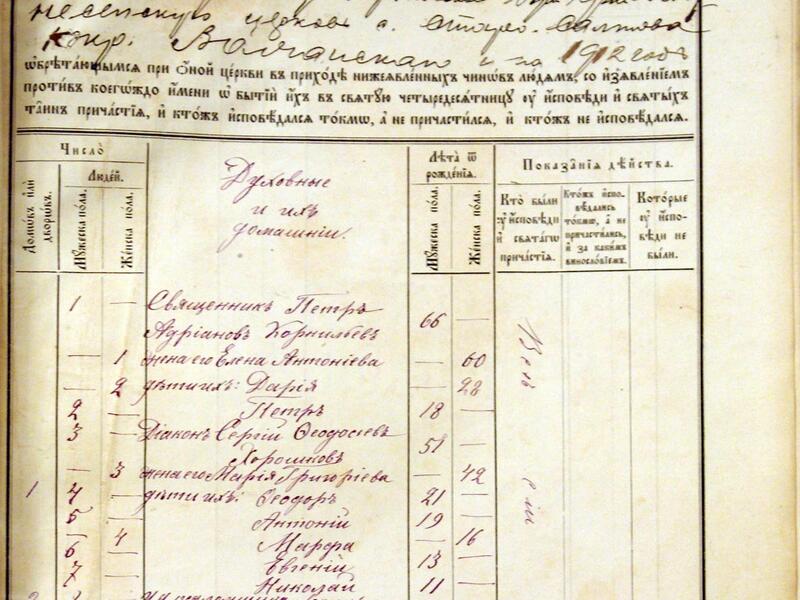 несенскую церковь с. Старо-Салтова
Волчанскаго 1912 годъ
ѡбрѣтающымсѧ при Ѻной церкви въ приходѣ нижеꙗвленныхъ чинѡвъ людѧмъ, со и҆з̾ѧвленіемъ
противъ коегѡждо имени ѡ бытіи и҆хъ въ свѧтꙋю четыредесѧтницꙋ ᲂу҆ и҆сповѣди и҆ свѧтыхъ
таинъ причастїѧ, и҆ ктѡжъ и҆сповѣдалсѧ токмѡ, а҆ не причастилсѧ, и҆ ктѡжъ не и҆сповѣдалсѧ.
Число̀
Людей.
Домѡвъ и҆лѝ дворѡвъ.
Мꙋжеска по́ла.
Же́нска по́ла.
Духовные
и ихъ
домашніи.
Лѣта ѿ
рожденїѧ.
Мꙋжеска по́ла.
Же́нска по́ла.
Показа̑нїѧ дѣ́йства.
Кто̀ были ᲂу҆ и҆сповѣди и҆ свѧтагѡ причастїѧ.
Ктѡжъ и҆спо-вѣдались токмѡ, а҆ не причастились, и҆ за какимъ винословїемъ.
Которые ᲂу҆ и҆спо-вѣди не были.
1 — Священникъ Петръ
Адріановъ Корнильевъ 66 —
— 1 жена его Елена Антоніева — 60
— 2 дѣти ихъ: Дарія — 28
2 — Петръ 18 —
3 — Діаконъ Сергій Ѳеодосіевъ
Хорошковъ 51 —
— 3 жена его Марія Григоріева — 42
1 4 — дѣти ихъ: Ѳеодоръ 21 —
5 — Антоній 19 —
— 4 Марфа — 16
6 — Евгеній 13 —
7 — Николай 11 —
2